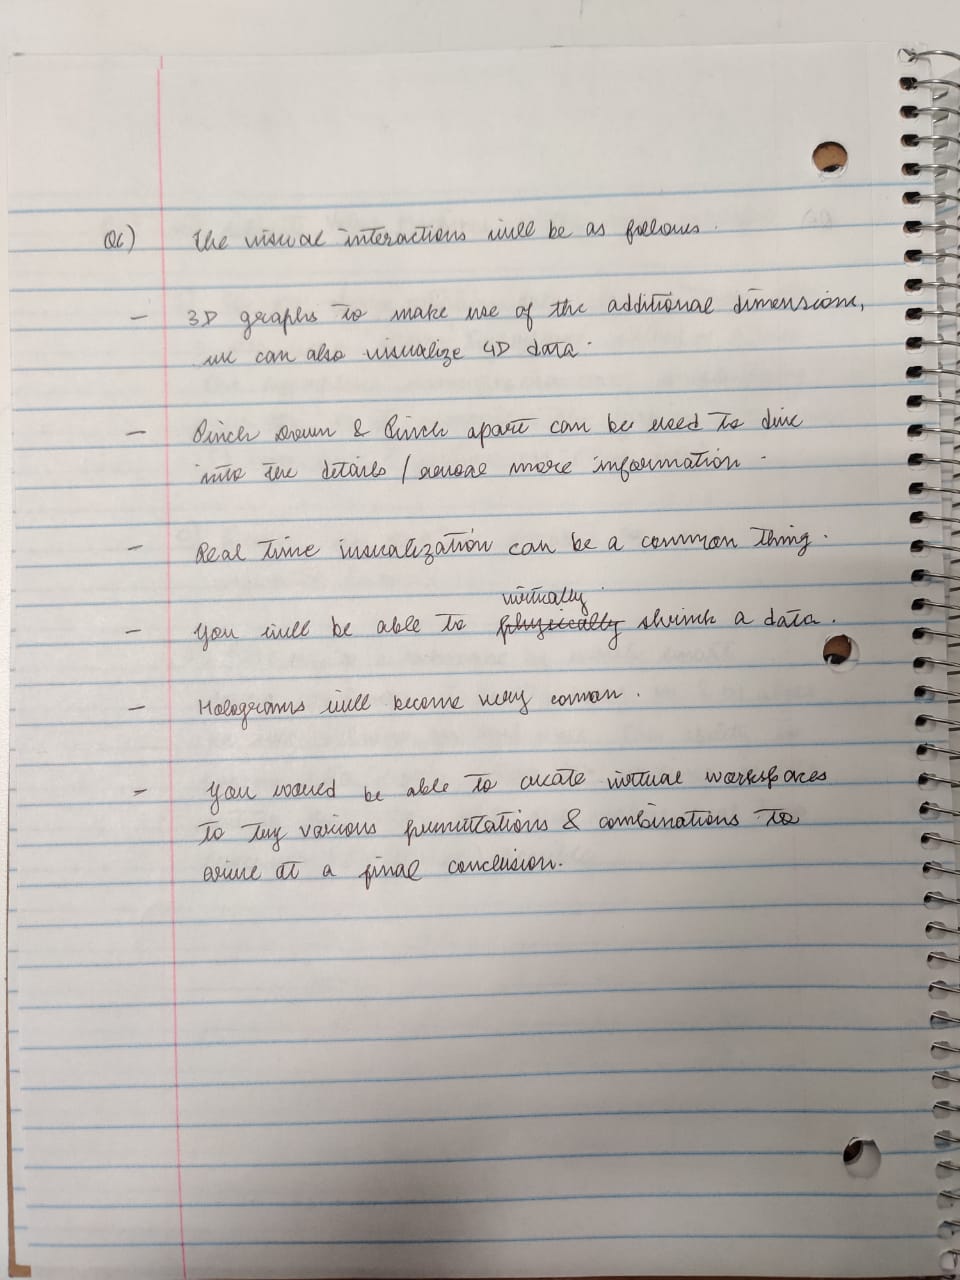 Q6) The visual interactions will be as follows.
- 3D graphs to make use of the additional dimensions,
we can also visualize 4D data.
- Pinch Down & Pinch apart can be used to dive
into the details / reveal more information.
- Real Time visualization can be a common thing.
virtually
- You will be able to physically shrink a data.
- Holograms will become very comon.
- You would be able to create virtual workspaces
to try various permutations & combinations to
arive at a final conclusion.